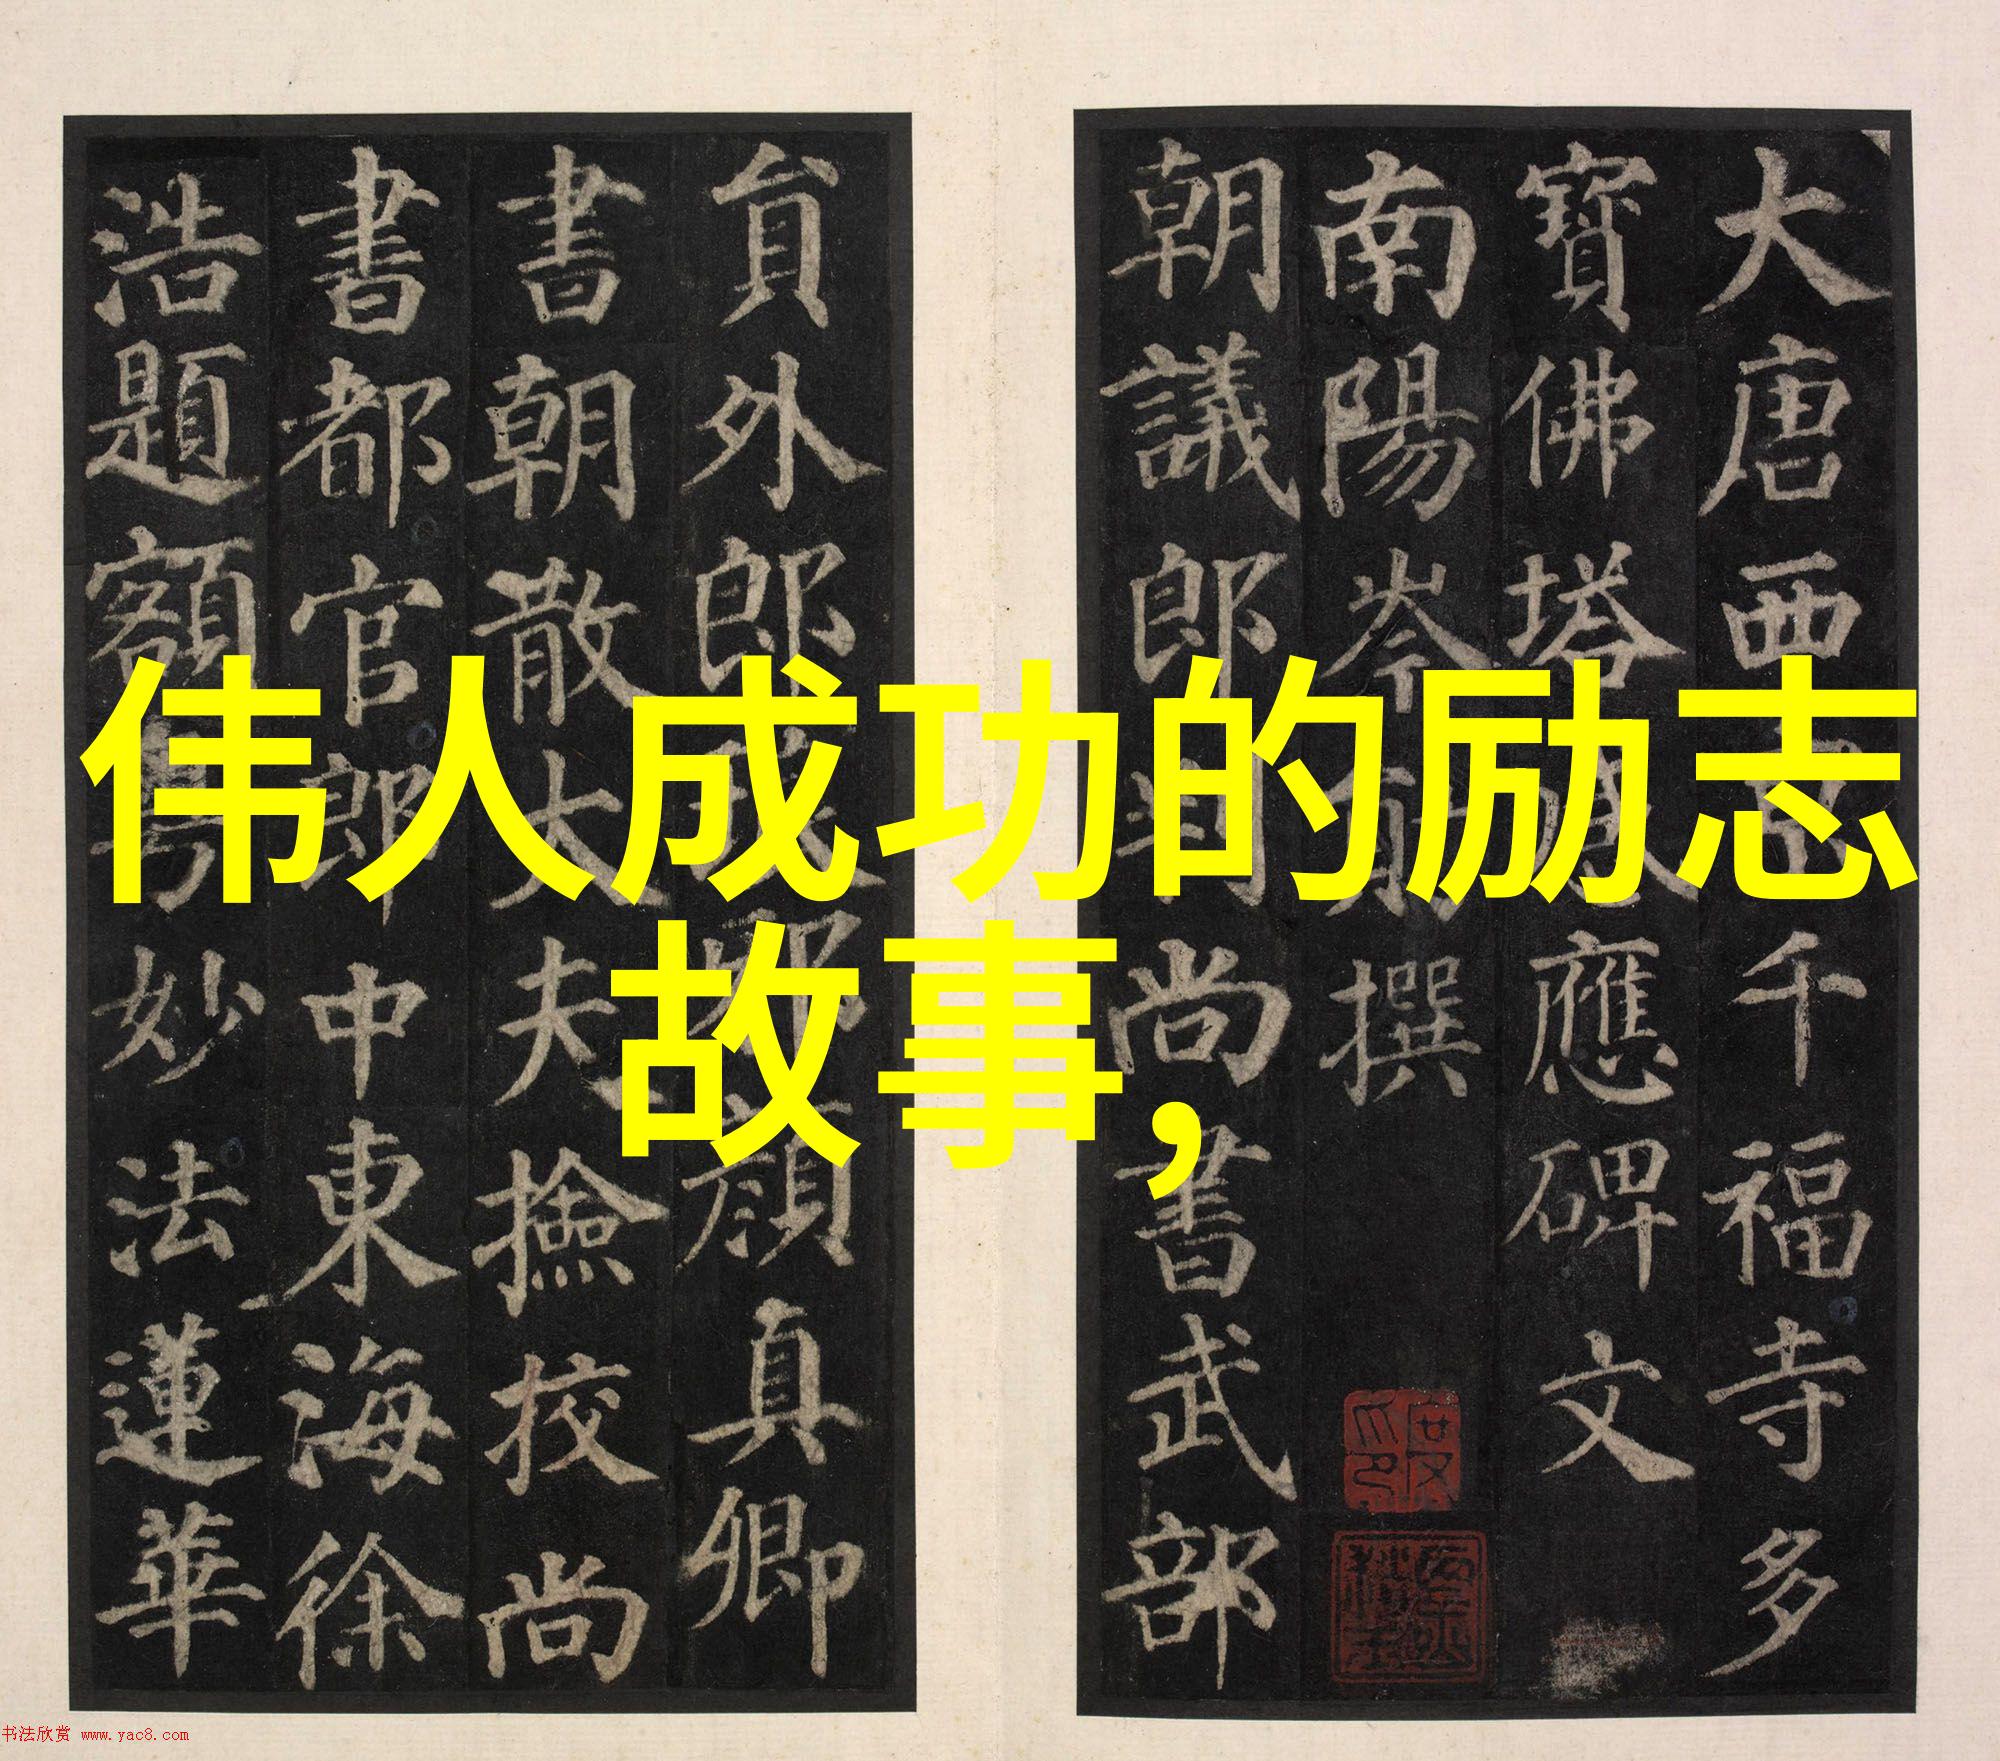 大唐西京千福寺多
寶佛塔感應碑文
南陽岑勛撰
朝議郎判尚書武部
貟外郎琅邪顔真卿
書朝散大夫撿校尚
書都官郎中東海徐
浩題額粤妙法蓮華
伟人成功的励志
故事,
书法欣赏 www.yac8.com